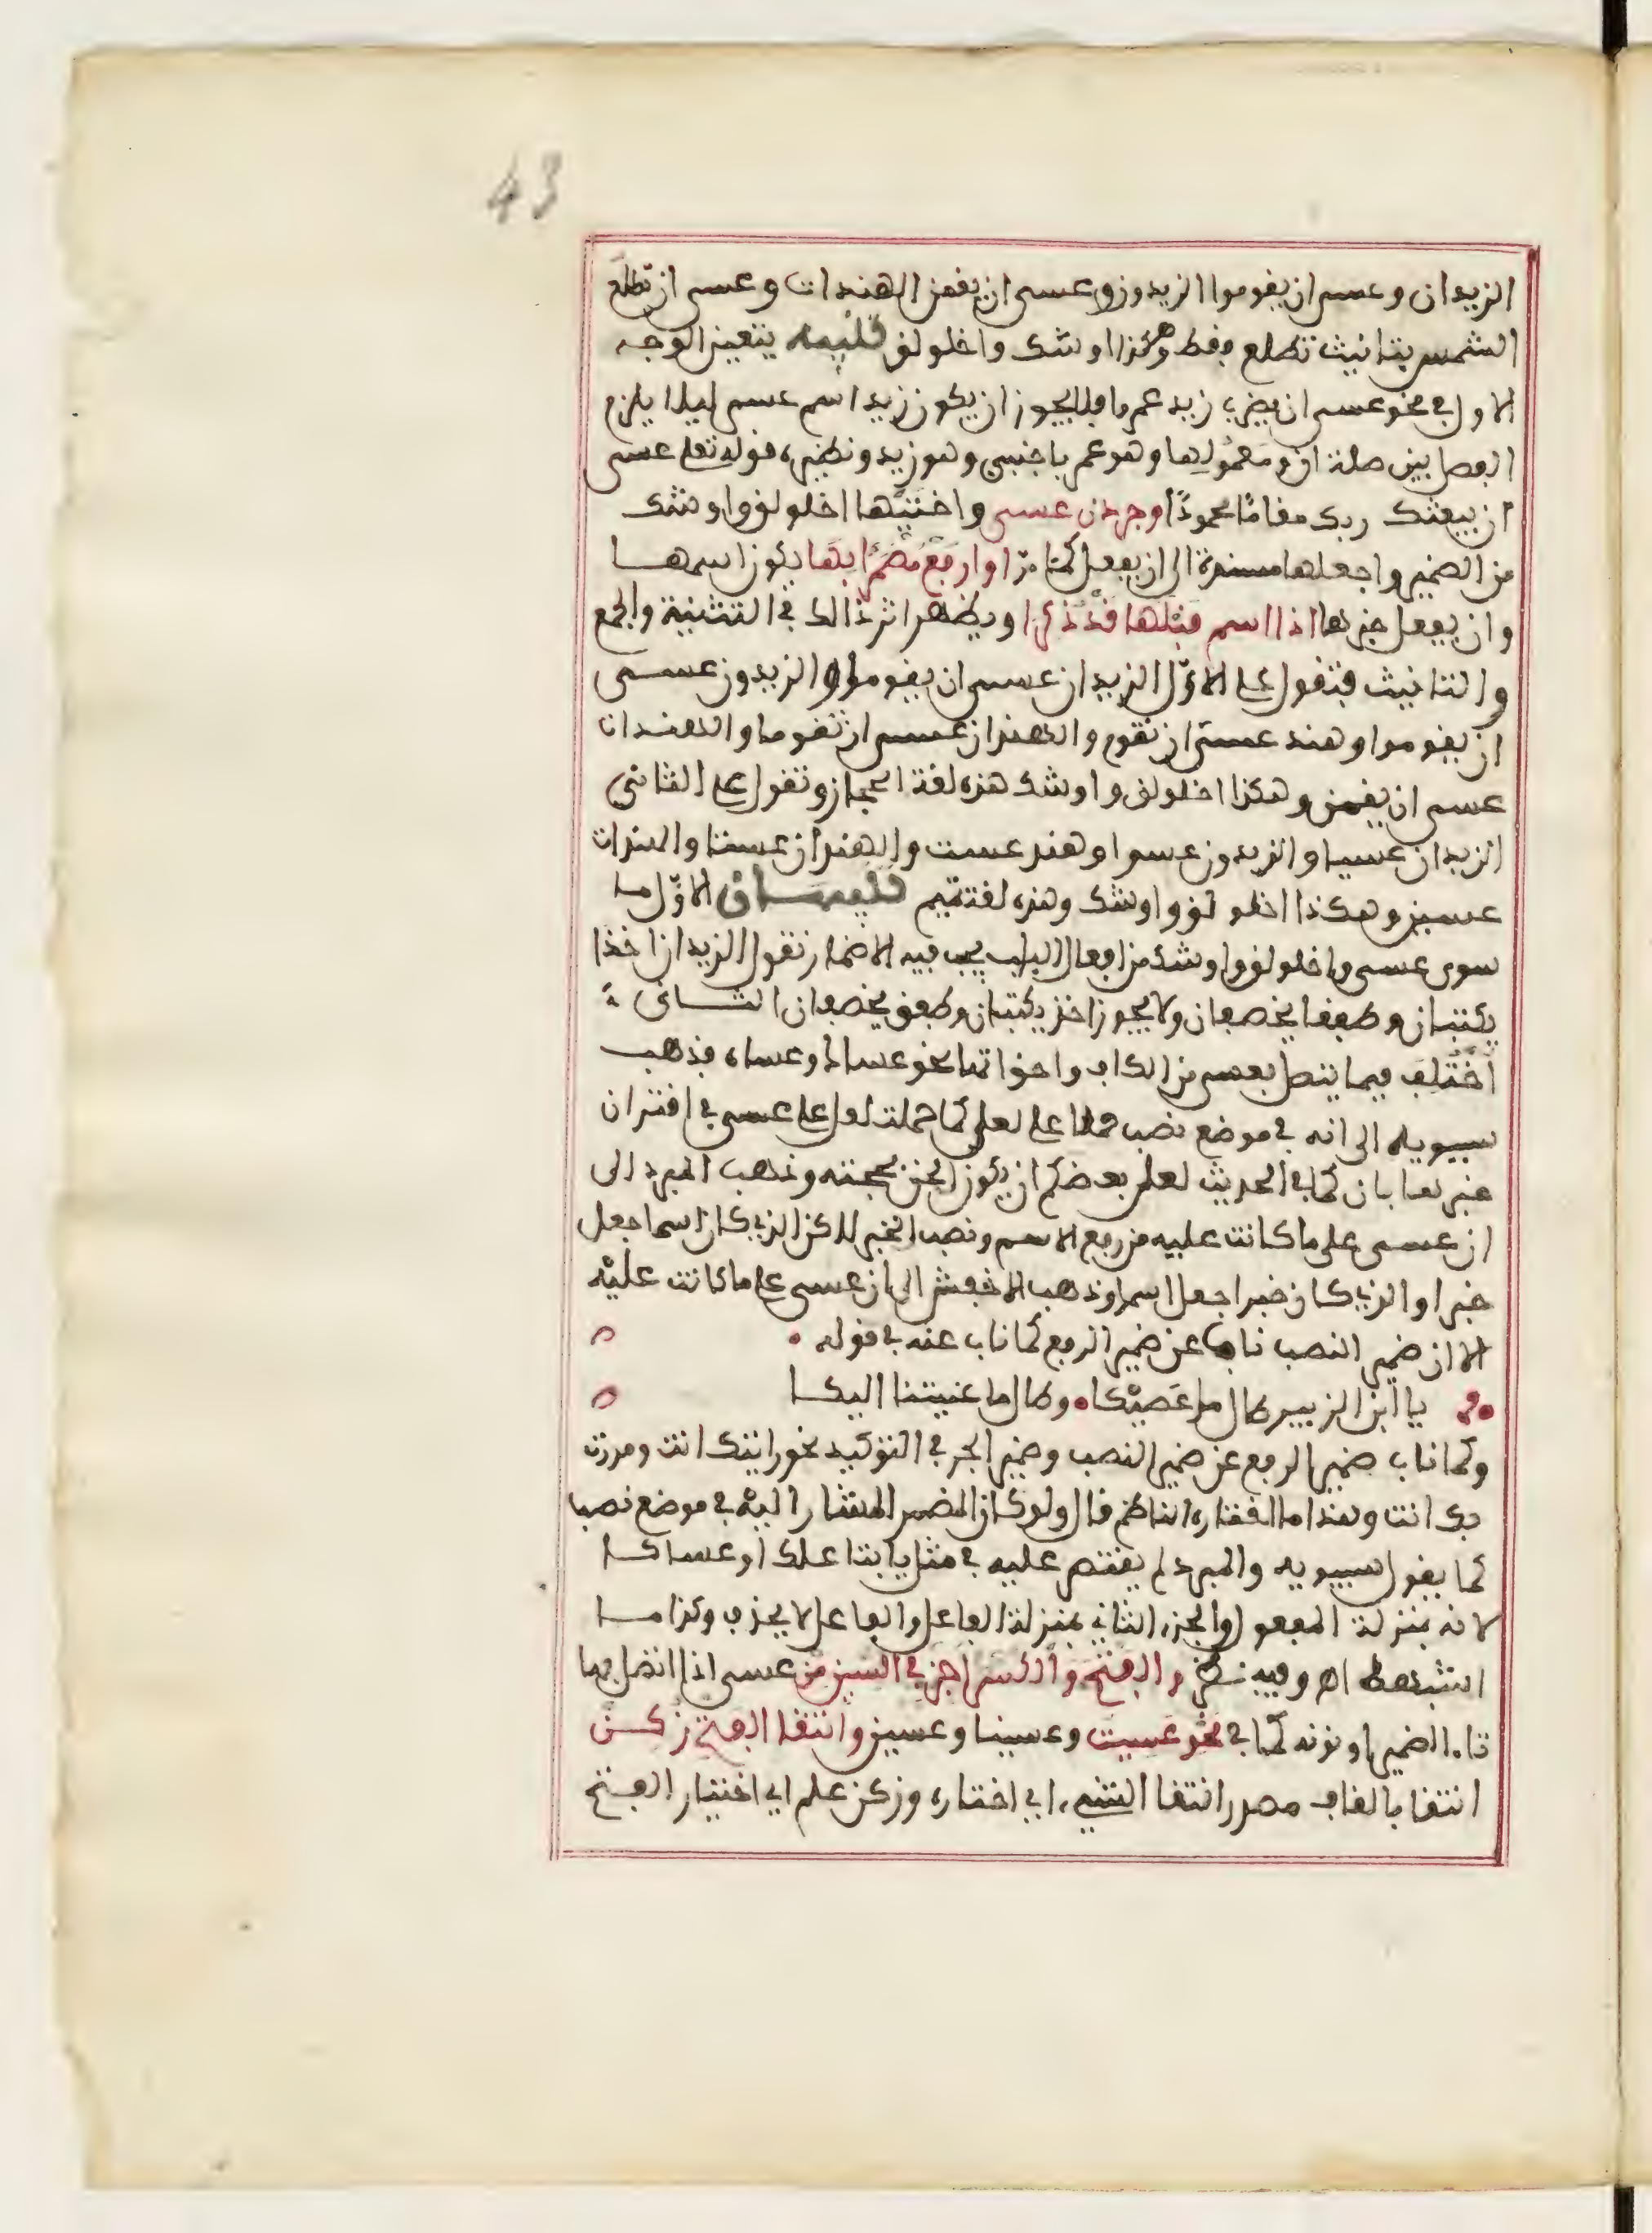 43
الزيدان وعسى ان يقوموا الزيدون وعسى ان يقمن الهندات وعسى ان تطلع
الشمس بتانيث تطلع فقط وهكذا اوشك واخلولق تنبيه يتعين الوجه
الاول في نحو عسى ان يضرب زيد عمرا فلا يجوز ان يكون زيد اسم عسى ليلا يلزم
الفصل بين صلة ان ومعمولها وهو عمرا باجنبي وهو زيد ونظيره قوله تعلى عسى
ان يبعثك ربك مقاما محمودا وجردن عسى واختيها اخلولق واوشك
من الضمير واجعلها مسندة الى ان يفعل كما مرّ او ارفع مضمرا بها يكون اسمها
وان يفعل خبرها اذا اسم قبلها قد ذكرا ويظهر اثر ذالك في التثنية والجمع
والتانيث فتقول على الاوّل الزيدان عسى ان يقوما والزيدون عسى
ان يقوموا وهند عسى ان تقوم والهندان عسى ان تقوما والهندات
عسى ان يقمن وهكذا اخلولق واوشك هذه لغة الحجاز وتقول على الثاني
الزيدان عسيا والزيدون عسوا وهند عست والهندان عستا والهندات
عسين وهكذا اخلولق واوشك وهذه لغة تميم تنبيهان الاوّل ما
سوى عسى واخلولق واوشك من افعال الباب يجب فيه الاضمار تقول الزيدان اخذا
يكتبان وطفقا يخصفان ولا يجوز اخذ يكتبان وطفق يخصفان الثاني
اختلف فيما يتصل بعسى من الكاف واخواتها نحو عساك وعساه فذهب
سيبويه الى انه في موضع نصب حملا على لعل كما حملت لعل على عسى في اقتران
خبرها بان كما في الحديث لعل بعضكم ان يكون الحن بحجته وذهب المبرد الى
ان عسى على ما كانت عليه من رفع الاسم ونصب الخبر لاكن الذي كان اسما جعل
خبرا والذي كان خبرا جعل اسما وذهب الاخفش الى ان عسى على ما كانت عليه
الا ان ضمير النصب ناب عن ضمير الرفع كما ناب عنه في قوله
يا ابن الزبير طال ما عصيكا وطال ما عنيتنا اليكا
وكما ناب ضمير الرفع عن ضمير النصب وضمير الجر في التوكيد نحو رايتك انت ومررت
بك انت وهذا ما اختاره الناظم قال ولو كان الضمير المشار اليه في موضع نصب
كما يقول سيبويه والمبرد لم يقتصر عليه في مثل يا ابتا علك او عساكا
لانه بمنزلة المفعول والجزء الثاني بمنزلة الفاعل والفاعل لا يحذف وكذا ما
اشبهه اه وفيه نظر والفتح والكسر اجز في السين من عسى اذا اتصل بها
تاء الضمير او نونه كما في نحو عسيت وعسينا وعسين وانتقا الفتح زكن
انتقا بالقاف مصدر انتقا الشيء اي اختاره وزكن علم اي اختيار الفتح